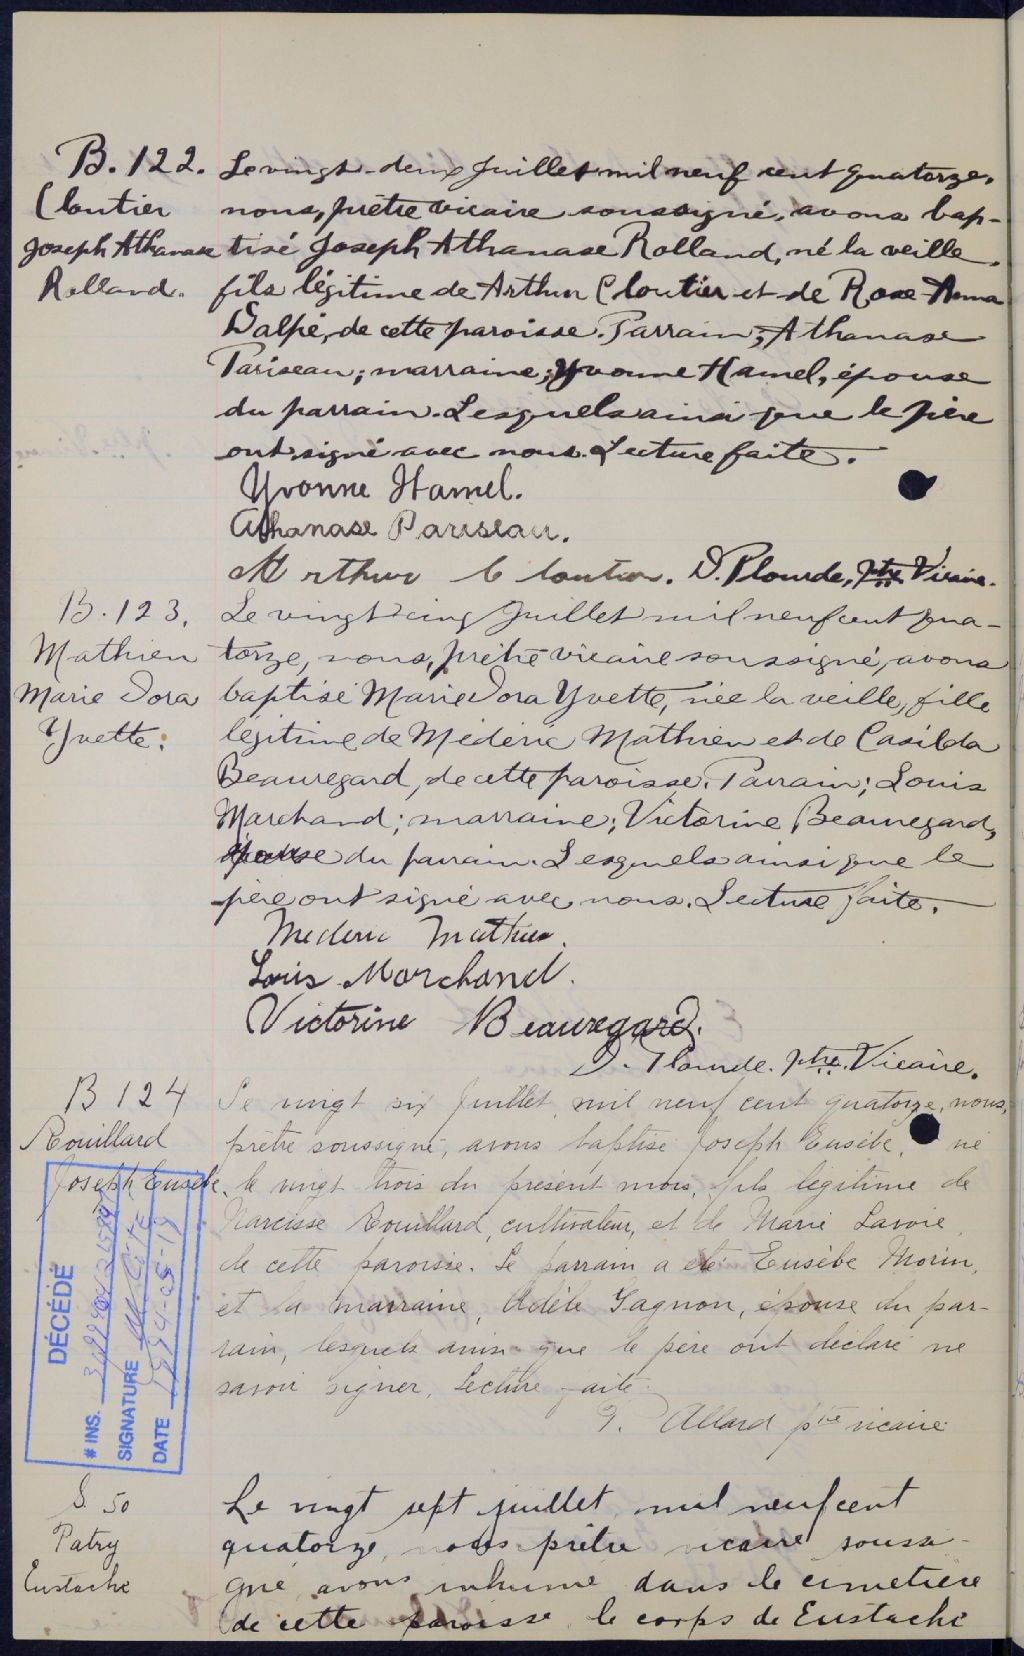 B. 122.
Cloutier
Joseph Athanase
Rolland.
Le vingt-deux Juillet mil neuf cent quatorze,
nous, prêtre vicaire soussigné, avons bap-
tisé Joseph Athanase Rolland, né la veille,
fils légitime de Arthur Cloutier et de Rose-Anna
Dalpé, de cette paroisse. Parrain; Athanase
Pariseau; marraine; Yvonne Hamel, épouse
du parrain. Lesquels ainsi que le père
ont signé avec nous. Lecture faite.
Yvonne Hamel.
Athanase Pariseau.
Arthur Cloutier. D. Plourde, ptre Vicaire.
B. 123.
Mathieu
Marie Dora
Yvette.
Le vingt cinq Juillet mil neuf cent qua-
torze, nous, prêtre vicaire soussigné, avons
baptisé Marie Dora Yvette, née la veille, fille
légitime de Médéric Mathieu et de Casilda
Beauregard, de cette paroisse. Parrain; Louis
Marchand; marraine; Victorine Beauregard,
épouse du parrain. Lesquels ainsi que le
père ont signé avec nous. Lecture faite.
Mederic Mathieu.
Louis Marchand.
Victorine Beauregard.
D. Plourde. ptre. Vicaire.
B 124
Rouillard
Joseph Eusèbe.
Le vingt six Juillet, mil neuf cent quatorze, nous,
prêtre soussigné, avons baptisé Joseph Eusèbe, né
le vingt trois du présent mois, fils légitime de
Narcisse Rouillard, cultivateur, et de Marie Lavoie
de cette paroisse. Le parrain a été Eusèbe Morin,
et la marraine, Adèle Gagnon, épouse du par-
rain, lesquels ainsi que le père ont déclaré ne
savoir signer. Lecture faite.
Allard ptre vicaire
DÉCÉDÉ
# INS.
SIGNATURE
DATE 1994-05-19
S. 50
Patry
Eustache
Le vingt sept juillet mil neuf cent
quatorze, nous prêtre vicaire soussi-
gné avons inhumé dans le cimetière
de cette paroisse le corps de Eustache